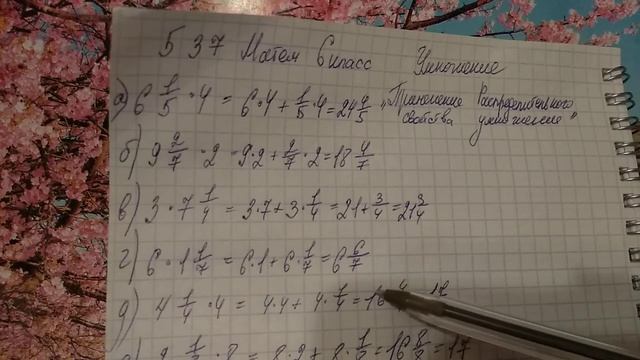 537 Матем 6 класс Умножение
а) 6 1/5 · 4 = 6·4 + 1/5 · 4 = 24 4/5 "Применение Распределительного свойства умножения"
б) 9 2/7 · 2 = 9·2 + 2/7 · 2 = 18 4/7
в) 3 · 7 1/4 = 3·7 + 3 · 1/4 = 21 + 3/4 = 21 3/4
г) 6 · 1 1/7 = 6·1 + 6 · 1/7 = 6 6/7
д) 4 1/4 · 4 = 4·4 + 4 · 1/4 = 16
· 8 = 8·2 + 8 · = 16 = 17